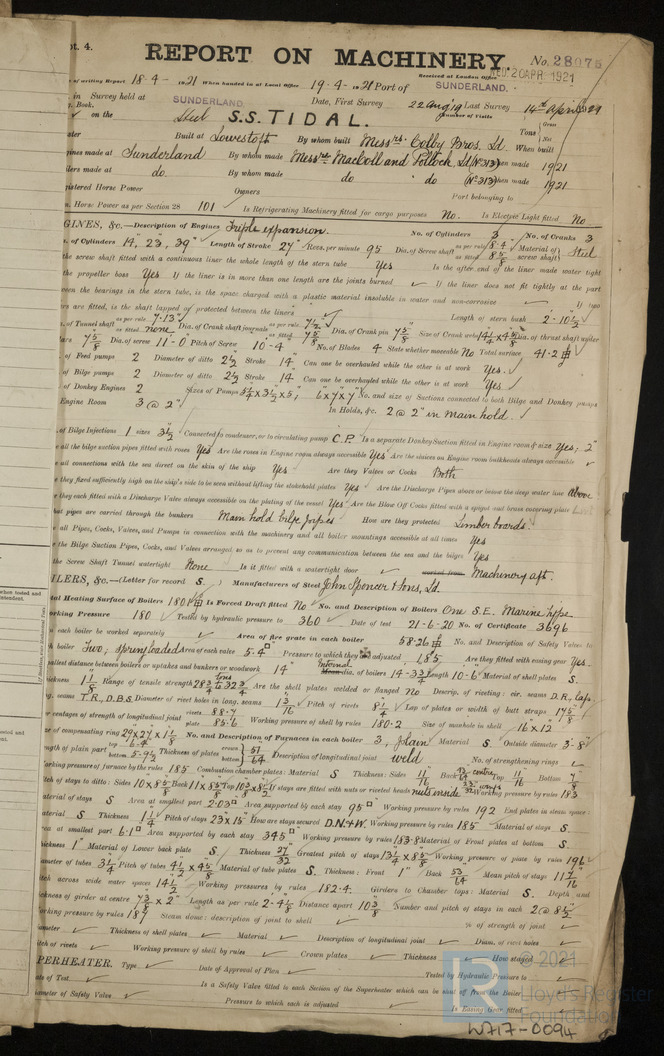 pt. 4.
REPORT ON MACHINERY.
No. 28075
WED. 20 APR 1921
of writing Report 18-4-1921 When handed in at Local Office 19-4-1921 Port of SUNDERLAND.
Received at London Office
in Survey held at SUNDERLAND Date, First Survey 22 Aug '19 Last Survey 14th April 1921
g. Book.
Number of Visits
on the Steel S.S. TIDAL.
Tons Gross Net
Built at Lowestoft By whom built Messrs. Colby Bros. Ld. When built
gines made at Sunderland By whom made Messrs. Maccoll and Pollock, Ld (No 313) when made 1921
ilers made at do. By whom made do do (No 313) when made 1921
gistered Horse Power Owners Port belonging to
m. Horse Power as per Section 28 101 Is Refrigerating Machinery fitted for cargo purposes No. Is Electric Light fitted No
GINES, &c.—Description of Engines Triple expansion. No. of Cylinders 3 No. of Cranks 3
. of Cylinders 14, 23, 39" Length of Stroke 27" Revs. per minute 95 Dia. of Screw shaft as per rule 8.4 Material of screw shaft Steel
the screw shaft fitted with a continuous liner the whole length of the stern tube Yes Is the after end of the liner made water tight
the propeller boss Yes If the liner is in more than one length are the joints burned If the liner does not fit tightly at the part
een the bearings in the stern tube, is the space charged with a plastic material insoluble in water and non-corrosive If two
rs are fitted, is the shaft lapped or protected between the liners Length of stern bush 2'-10½"
. of Tunnel shaft as per rule 7.13" as fitted none Dia. of Crank shaft journals as per rule 7½" as fitted 7⅝ Dia. of Crank pin 7⅝" Size of Crank webs Dia. of thrust shaft under
lars 7⅝ Dia. of screw 11'-0" Pitch of Screw 10'-4" No. of Blades 4 State whether moveable No Total surface 41.2
. of Feed pumps 2 Diameter of ditto 2½ Stroke 14" Can one be overhauled while the other is at work Yes.
. of Bilge pumps 2 Diameter of ditto 2½ Stroke 14 Can one be overhauled while the other is at work Yes
of Donkey Engines 2 Sizes of Pumps 5¼ x 3½ x 5; 6 x 7 x 7" No. and size of Suctions connected to both Bilge and Donkey pumps
Engine Room 3 @ 2" In Holds, &c. 2 @ 2" in main hold.
. of Bilge Injections 1 sizes 3½ Connected to condenser, or to circulating pump C.P. Is a separate Donkey Suction fitted in Engine room & size Yes, 2"
all the bilge suction pipes fitted with roses Yes Are the roses in Engine room always accessible Yes Are the sluices on Engine room bulkheads always accessible
all connections with the sea direct on the skin of the ship Yes Are they Valves or Cocks Both
they fixed sufficiently high on the ship's side to be seen without lifting the stokehold plates Yes Are the Discharge Pipes above or below the deep water line above
they each fitted with a Discharge Valve always accessible on the plating of the vessel Yes Are the Blow Off Cocks fitted with a spigot and brass covering plate
hat pipes are carried through the bunkers Main hold bilge pipes How are they protected Limber boards.
all Pipes, Cocks, Valves, and Pumps in connection with the machinery and all boiler mountings accessible at all times Yes
the Bilge Suction Pipes, Cocks, and Valves arranged so as to prevent any communication between the sea and the bilges Yes
the Screw Shaft Tunnel watertight None Is it fitted with a watertight door worked from Machinery aft.
ILERS, &c.—(Letter for record S.) Manufacturers of Steel John Spencer & Sons, Ld.
tal Heating Surface of Boilers 1801 Is Forced Draft fitted No No. and Description of Boilers One S.E. Marine type
orking Pressure 180 Tested by hydraulic pressure to 360 Date of test 21-6-20 No. of Certificate 3696
each boiler be worked separately Area of fire grate in each boiler 58.26 No. and Description of Safety Valves to
h boiler Two; spring loaded Area of each valve 5.4 Pressure to which they are adjusted 185 Are they fitted with easing gear Yes
allest distance between boilers or uptakes and bunkers or woodwork 14" Internal dia. of boilers 14'-3¾ Length 10'-6" Material of shell plates S.
ickness 1⅛ Range of tensile strength 28¾ to 32¾ tons Are the shell plates welded or flanged No Descrip. of riveting: cir. seams D.R., Lap
g. seams T.R., D.B.S. Diameter of rivet holes in long. seams 1 3/16 Pitch of rivets 8¼ Lap of plates or width of butt straps 17⅝
centages of strength of longitudinal joint rivets 88.7 plate 85.6 Working pressure of shell by rules 180.2 Size of manhole in shell 16" x 12"
e of compensating ring 29 x 27 x 1⅛ No. and Description of Furnaces in each boiler 3, plain Material S Outside diameter 3'-8"
ngth of plain part top 6.4 bottom 5-9½ Thickness of plates crown bottom 51/64 Description of longitudinal joint weld No. of strengthening rings
rking pressure of furnace by the rules 185 Combustion chamber plates: Material S Thickness: Sides 11/16 Back centre Top 11/16 Bottom 7/8
tch of stays to ditto: Sides 10 x 8⅝ Back 11 x 8⅝ Top 10⅜ x 8½ If stays are fitted with nuts or riveted heads nuts inside Working pressure by rules 183
aterial of stays S Area at smallest part 2.03 Area supported by each stay 95 Working pressure by rules 192 End plates in steam space:
aterial S Thickness 1¼ Pitch of stays 23 x 15" How are stays secured D.N.&W. Working pressure by rules 185 Material of stays S.
ea at smallest part 6.1 Area supported by each stay 345 Working pressure by rules 183.8 Material of Front plates at bottom S.
ickness 1" Material of Lower back plate S. Thickness 27/32 Greatest pitch of stays 13¼ x 8⅝ Working pressure of plate by rules 196
ameter of tubes 3¼ Pitch of tubes 4½ x 4⅝ Material of tube plates S. Thickness: Front 1" Back 53/64 Mean pitch of stays 11 7/16
tch across wide water spaces 14½ Working pressures by rules 182.4. Girders to Chamber tops: Material S. Depth and
ickness of girder at centre 7⅝ x 2" Length as per rule 2'-4⅛ Distance apart 10⅜ Number and pitch of stays in each 2 @ 8½"
orking pressure by rules 187 Steam dome: description of joint to shell % of strength of joint
ameter Thickness of shell plates Material Description of longitudinal joint Diam. of rivet holes
itch of rivets Working pressure of shell by rules Crown plates Thickness How stayed
PERHEATER. Type Date of Approval of Plan Tested by Hydraulic Pressure to
ate of Test Is a Safety Valve fitted to each Section of the Superheater which can be shut off from the Boiler
iameter of Safety Valve Pressure to which each is adjusted Is Easing Gear fitted
© 2021
Lloyd's Register
Foundation
W717-0094